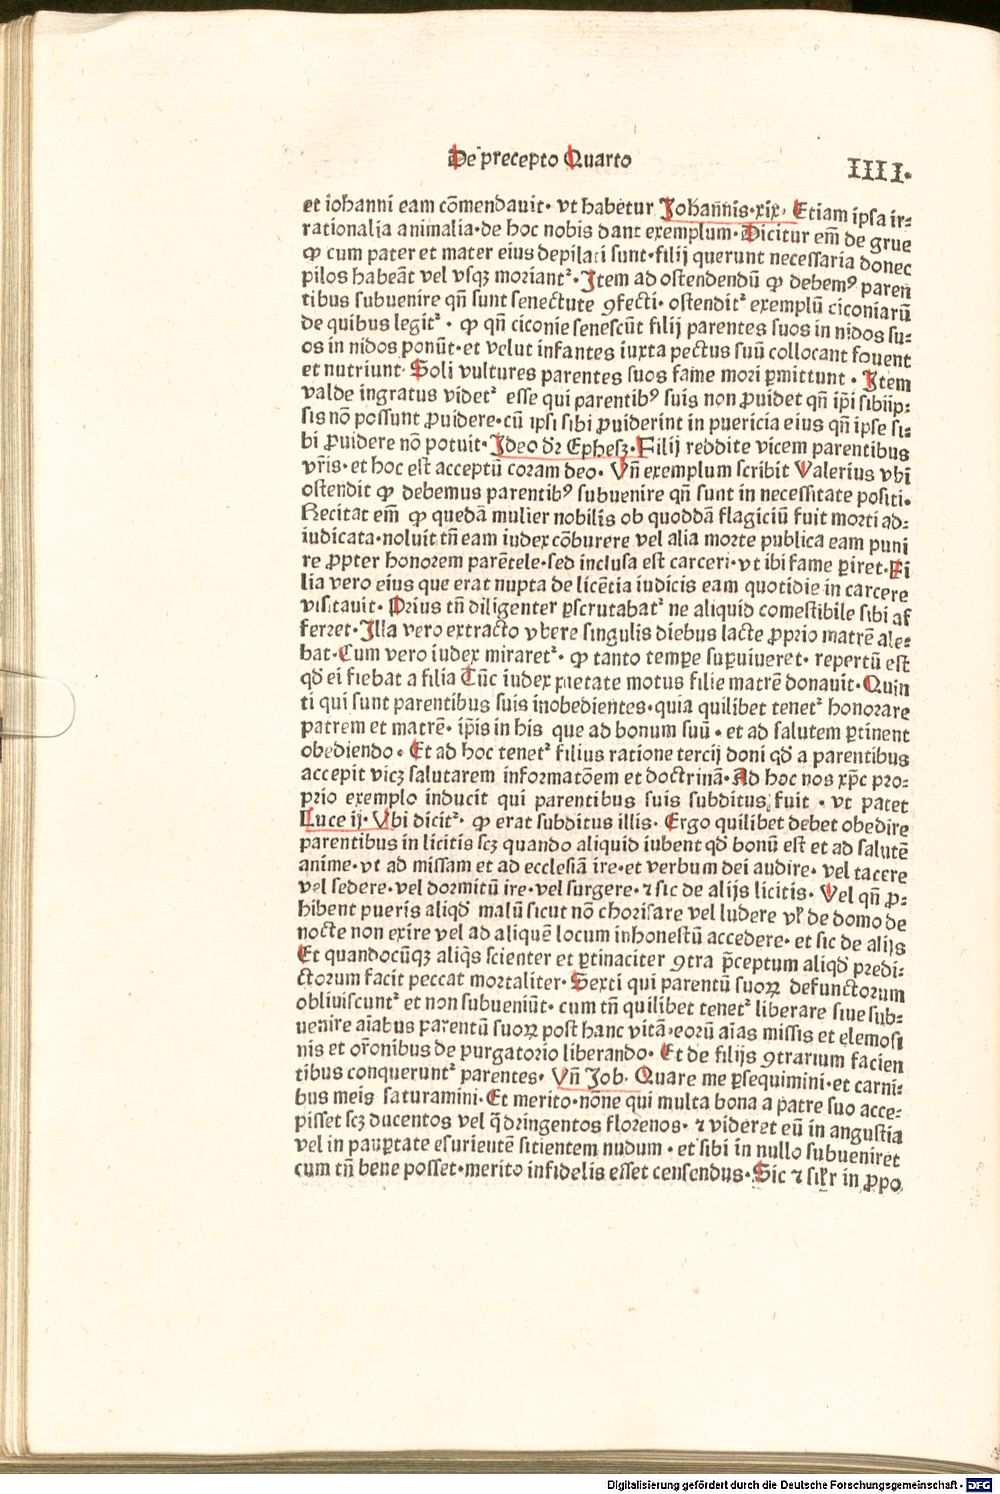 De precepto Quarto
IIII.
et iohanni eam cōmendauit· vt habetur Johannis·xix· Etiam ipsa ir⸗
rationalia animalia·de hoc nobis dant exemplum·Dicitur em̄ de grue
ꝙ cum pater et mater eius depilati sunt·filij querunt necessaria donec
pilos habeāt vel vsqꝫ moriantᷣ·Item ad ostendendū ꝙ debemꝰ paren
tibus subuenire qn̄ sunt senectute ꝯfecti· ostenditᷣ exemplū ciconiarū
de quibus legitᷣ · ꝙ qn̄ ciconie senescūt filij parentes suos in nidos su⸗
os in nidos ponūt·et velut infantes iuxta pectus suū collocant fouent
et nutriunt· Soli vultures parentes suos fame mori ꝑmittunt · Item
valde ingratus videtᷣ esse qui parentibꝰ suis non ꝓuidet qn̄ ip̄i sibiip⸗
sis nō possunt ꝓuidere·cū ipsi sibi ꝓuiderint in puericia eius qn̄ ipse si⸗
bi ꝓuidere nō potuit·Ideo dꝛ Ephesꝫ·Filij reddite vicem parentibus
vr̄is·et hoc est acceptū coram deo· Vn̄ exemplum scribit Valerius vbi
ostendit ꝙ debemus parentibꝰ subuenire qn̄ sunt in necessitate positi·
Recitat em̄ ꝙ quedā mulier nobilis ob quoddā flagiciū fuit morti ad⸗
iudicata·noluit tn̄ eam iudex cōburere vel alia morte publica eam puni
re ꝓpter honorem parētele·sed inclusa est carceri·vt ibi fame ꝑiret·Fi
lia vero eius que erat nupta de licētia iudicis eam quotidie in carcere
visitauit· Prius tn̄ diligenter ꝑscrutabatᷣ ne aliquid comestibile sibi af
ferret·Illa vero extracto vbere singulis diebus lacte ꝓprio matrē ale⸗
bat·Cum vero iudex miraretᷣ· ꝙ tanto tempore suꝑuiueret· repertū est
qd̄ ei fiebat a filia Tūc iudex pietate motus filie matrē donauit·Quin
ti qui sunt parentibus suis inobedientes·quia quilibet tenetᷣ honorare
patrem et matrē· ip̄is in his que ad bonum suū · et ad salutem ꝑtinent
obediendo · Et ad hoc tenetᷣ filius ratione tercij doni qd̄ a parentibus
accepit vicꝫ salutarem informatōem et doctrinā·Ad hoc nos xp̄c pro⸗
prio exemplo inducit qui parentibus suis subditus fuit · vt patet
Luce ij· Vbi dicitᷣ· ꝙ erat subditus illis· Ergo quilibet debet obedire
parentibus in licitis scꝫ quando aliquid iubent qd̄ bonū est et ad salutē
anime·vt ad missam et ad ecclesiā ire·et verbum dei audire· vel tacere
vel sedere·vel dormitū ire·vel surgere·⁊ sic de alijs licitis· Vel qn̄ ꝓ⸗
hibent pueris aliqd̄ malū sicut nō chorisare vel ludere vl̓ de domo de
nocte non exire vel ad aliquē locum inhonestū accedere· et sic de alijs
Et quandocūqꝫ aliq̄s scienter et ꝑtinaciter ꝯtra p̄ceptum aliqd̄ predi⸗
ctorum facit peccat mortaliter·Sexti qui parentū suoꝝ defunctorum
obliuiscuntᷣ et non subueniūt· cum tn̄ quilibet tenetᷣ liberare siue sub⸗
uenire aīabus parentū suoꝝ post hanc vitā·eorū aīas missis et elemosi
nis et or̄onibus de purgatorio liberando· Et de filijs ꝯtrarium facien
tibus conqueruntᷣ parentes· Vn̄ Job· Quare me ꝑsequimini·et carni⸗
bus meis saturamini·Et merito·nōne qui multa bona a patre suo acce⸗
pisset scꝫ ducentos vel q̄dringentos florenos· ⁊ videret eū in angustia
vel in pauꝑtate esurientē sitientem nudum · et sibi in nullo subueniret
cum tn̄ bene posset·merito infidelis esset censendus·Sic ⁊ sil̓r in ꝓpo
Digitalisierung gefördert durch die Deutsche Forschungsgemeinschaft · DFG